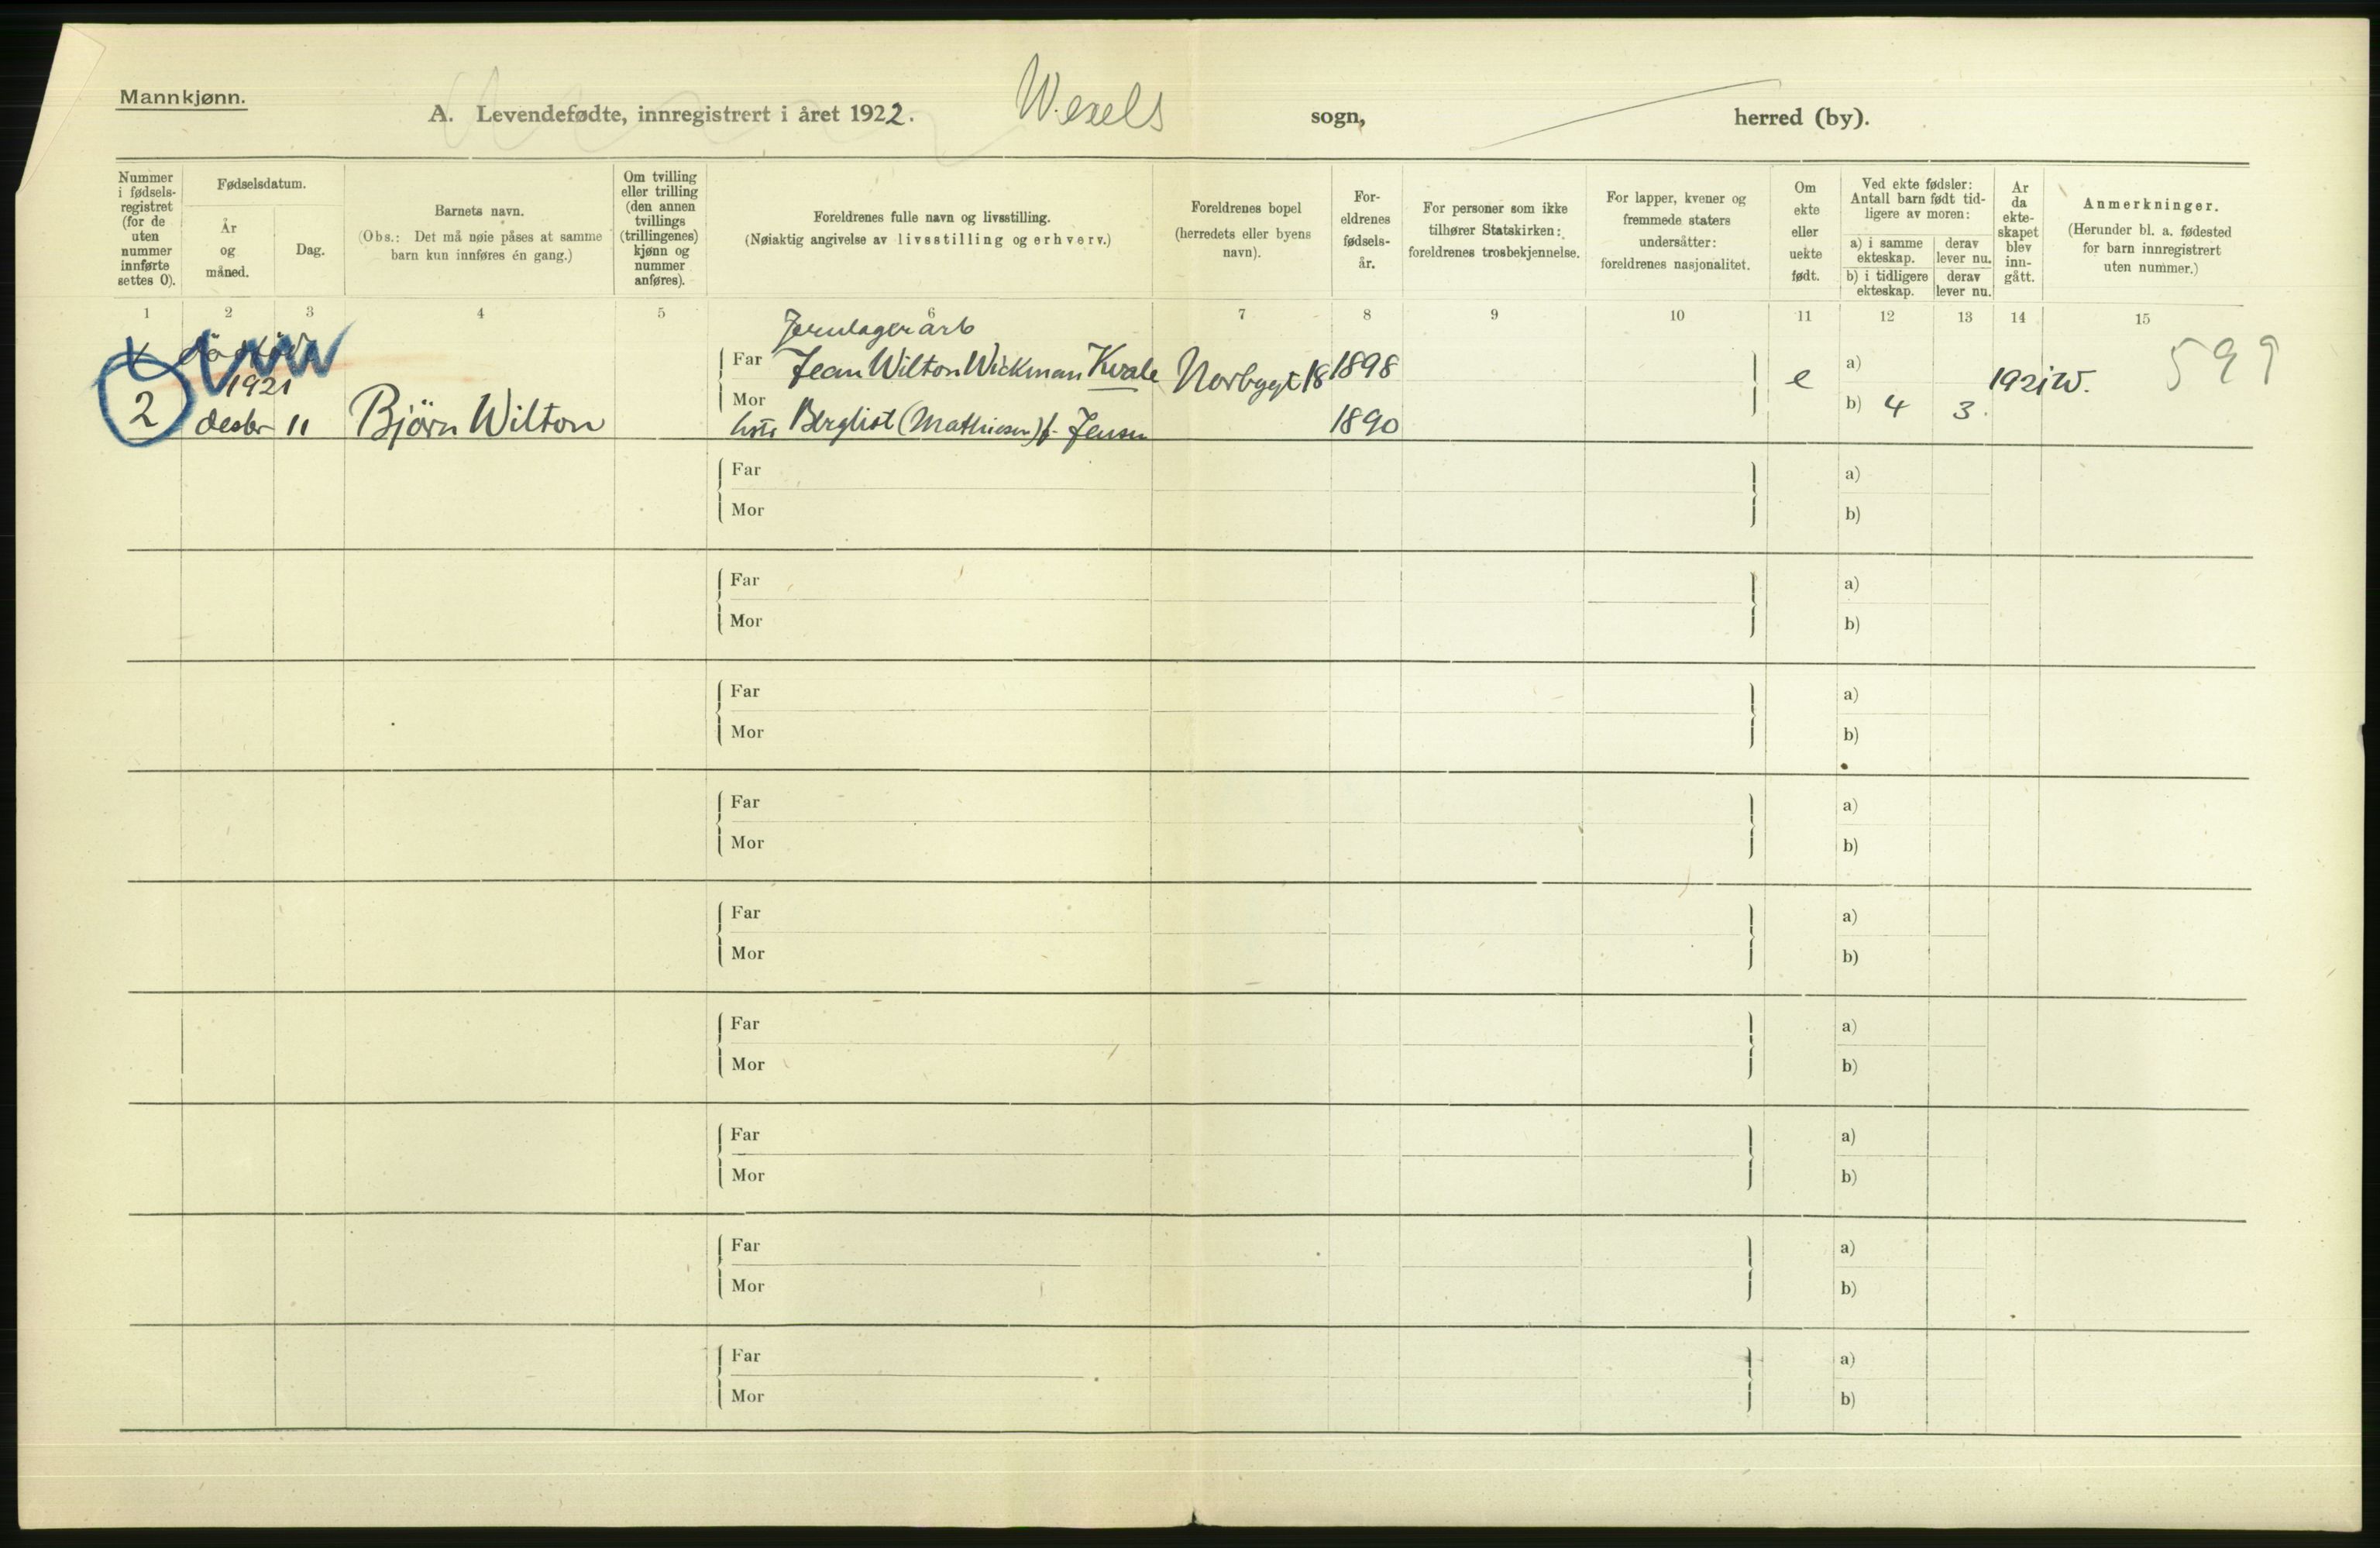 Mannkjønn.
A. Levendefødte, innregistrert i året 1922. Wexels sogn, herred (by).
Nummer i fødsels-registret (for de uten nummer innførte settes 0).
Fødselsdatum.
År og måned.
Dag.
Barnets navn.
(Obs.: Det må nøie påses at samme barn kun innføres én gang.)
Om tvilling eller trilling (den annen tvillings (trillingenes) kjønn og nummer anføres).
Foreldrenes fulle navn og livsstilling.
(Nøiaktig angivelse av livsstilling og erhverv.)
Foreldrenes bopel (herredets eller byens navn).
For-eldrenes fødsels-år.
For personer som ikke tilhører Statskirken: foreldrenes trosbekjennelse.
For lapper, kvener og fremmede staters undersåtter: foreldrenes nasjonalitet.
Om ekte eller uekte født.
Ved ekte fødsler: Antall barn født tid-ligere av moren:
a) i samme ekteskap.
derav lever nu.
b) i tidligere ekteskap.
derav lever nu.
År da ekte-skapet blev inn-gått.
Anmerkninger.
(Herunder bl. a. fødested for barn innregistrert uten nummer.)
1 2 3 4 5 6 7 8 9 10 11 12 13 14 15
Jernlagerarb
Far Jean Wilton Wickman Kvale Norbygt 18 1898 e a) 1921 W. 599
1921
2 desbr 11 Bjørn Wilton
Mor Berglist (Mathiesen) f. Jensen 1890 b) 4 3.
Far a)
Mor b)
Far a)
Mor b)
Far a)
Mor b)
Far a)
Mor b)
Far a)
Mor b)
Far a)
Mor b)
Far a)
Mor b)
Far a)
Mor b)
Far a)
Mor b)